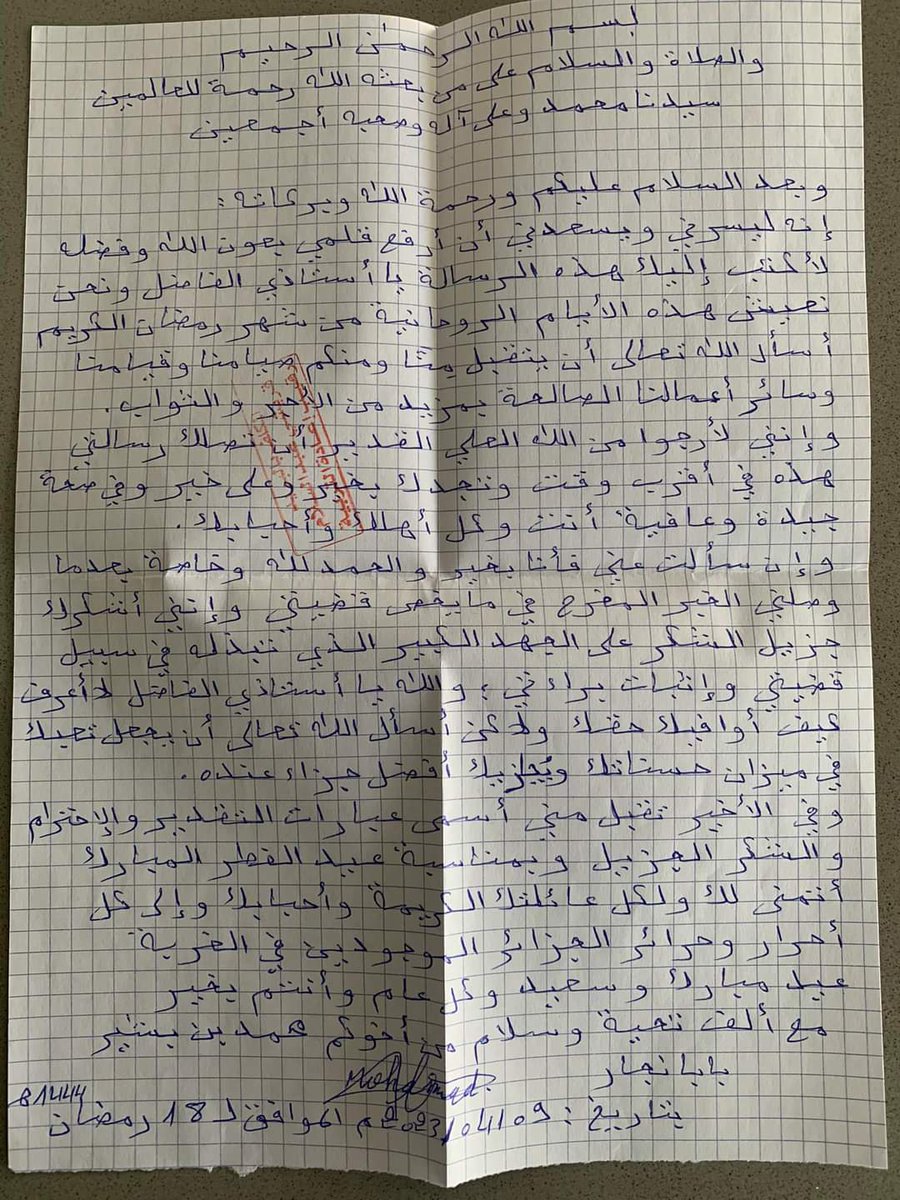 بسم الله الرحمان الرحيم
والصلاة والسلام على من بعثه الله رحمة للعالمين
سيدنا محمد وعلى آله وصحبه أجمعين
وبعد السلام عليكم ورحمة الله وبركاته :
إنه ليسرني ويسعدني أن أرفع قلمي بعون الله وفضله
لأكتب إليك هذه الرسالة يا أستاذي الفاضل ونحن
نعيش هذه الأيام الروحانية من شهر رمضان الكريم
أسأل الله تعالى أن يتقبل منّا ومنكم صيامنا وقيامنا
وسائر أعمالنا الصالحة بمزيد من الأجر والثواب.
وإنني لأرجوا من الله العلي القدير أن تصلك رسالتي
هذه في أقرب وقت وتجدك بخير وعلى خير وفي صحة
جيدة وعافية أنت وكل أهلك وأحبابك.
وإن سألت عني فأنا بخير والحمد لله وخاصة بعدما
وصلني الخبر المفرح في ما يخص قضيتي وإنني أشكرك
جزيل الشكر على الجهد الكبير الذي تبذله في سبيل
قضيتي وإثبات براءتي، والله يا أستاذي الفاضل لا أعرف
كيف أوافيك حقك ولاكن أسأل الله تعالى أن يجعل تعبك
في ميزان حسناتك ويجازيك أفضل جزاء عنده.
وفي الأخير تقبل مني أسمى عبارات التقدير والإحترام
والشكر الجزيل وبمناسبة عيد الفطر المبارك
أتمنى لك ولكل عائلتك الكريمة وأحبابك وإلى كل
أحرار وحرائر الجزائر الموجودين في الغربة
عيد مبارك وسعيد وكل عام وأنتم بخير
مع ألف تحية وسلام من أخوكم محمد بن بشير
بابا نجار
Mohammed.
81444
بتاريخ : 2023/04/09م الموافق لـ 18 رمضان